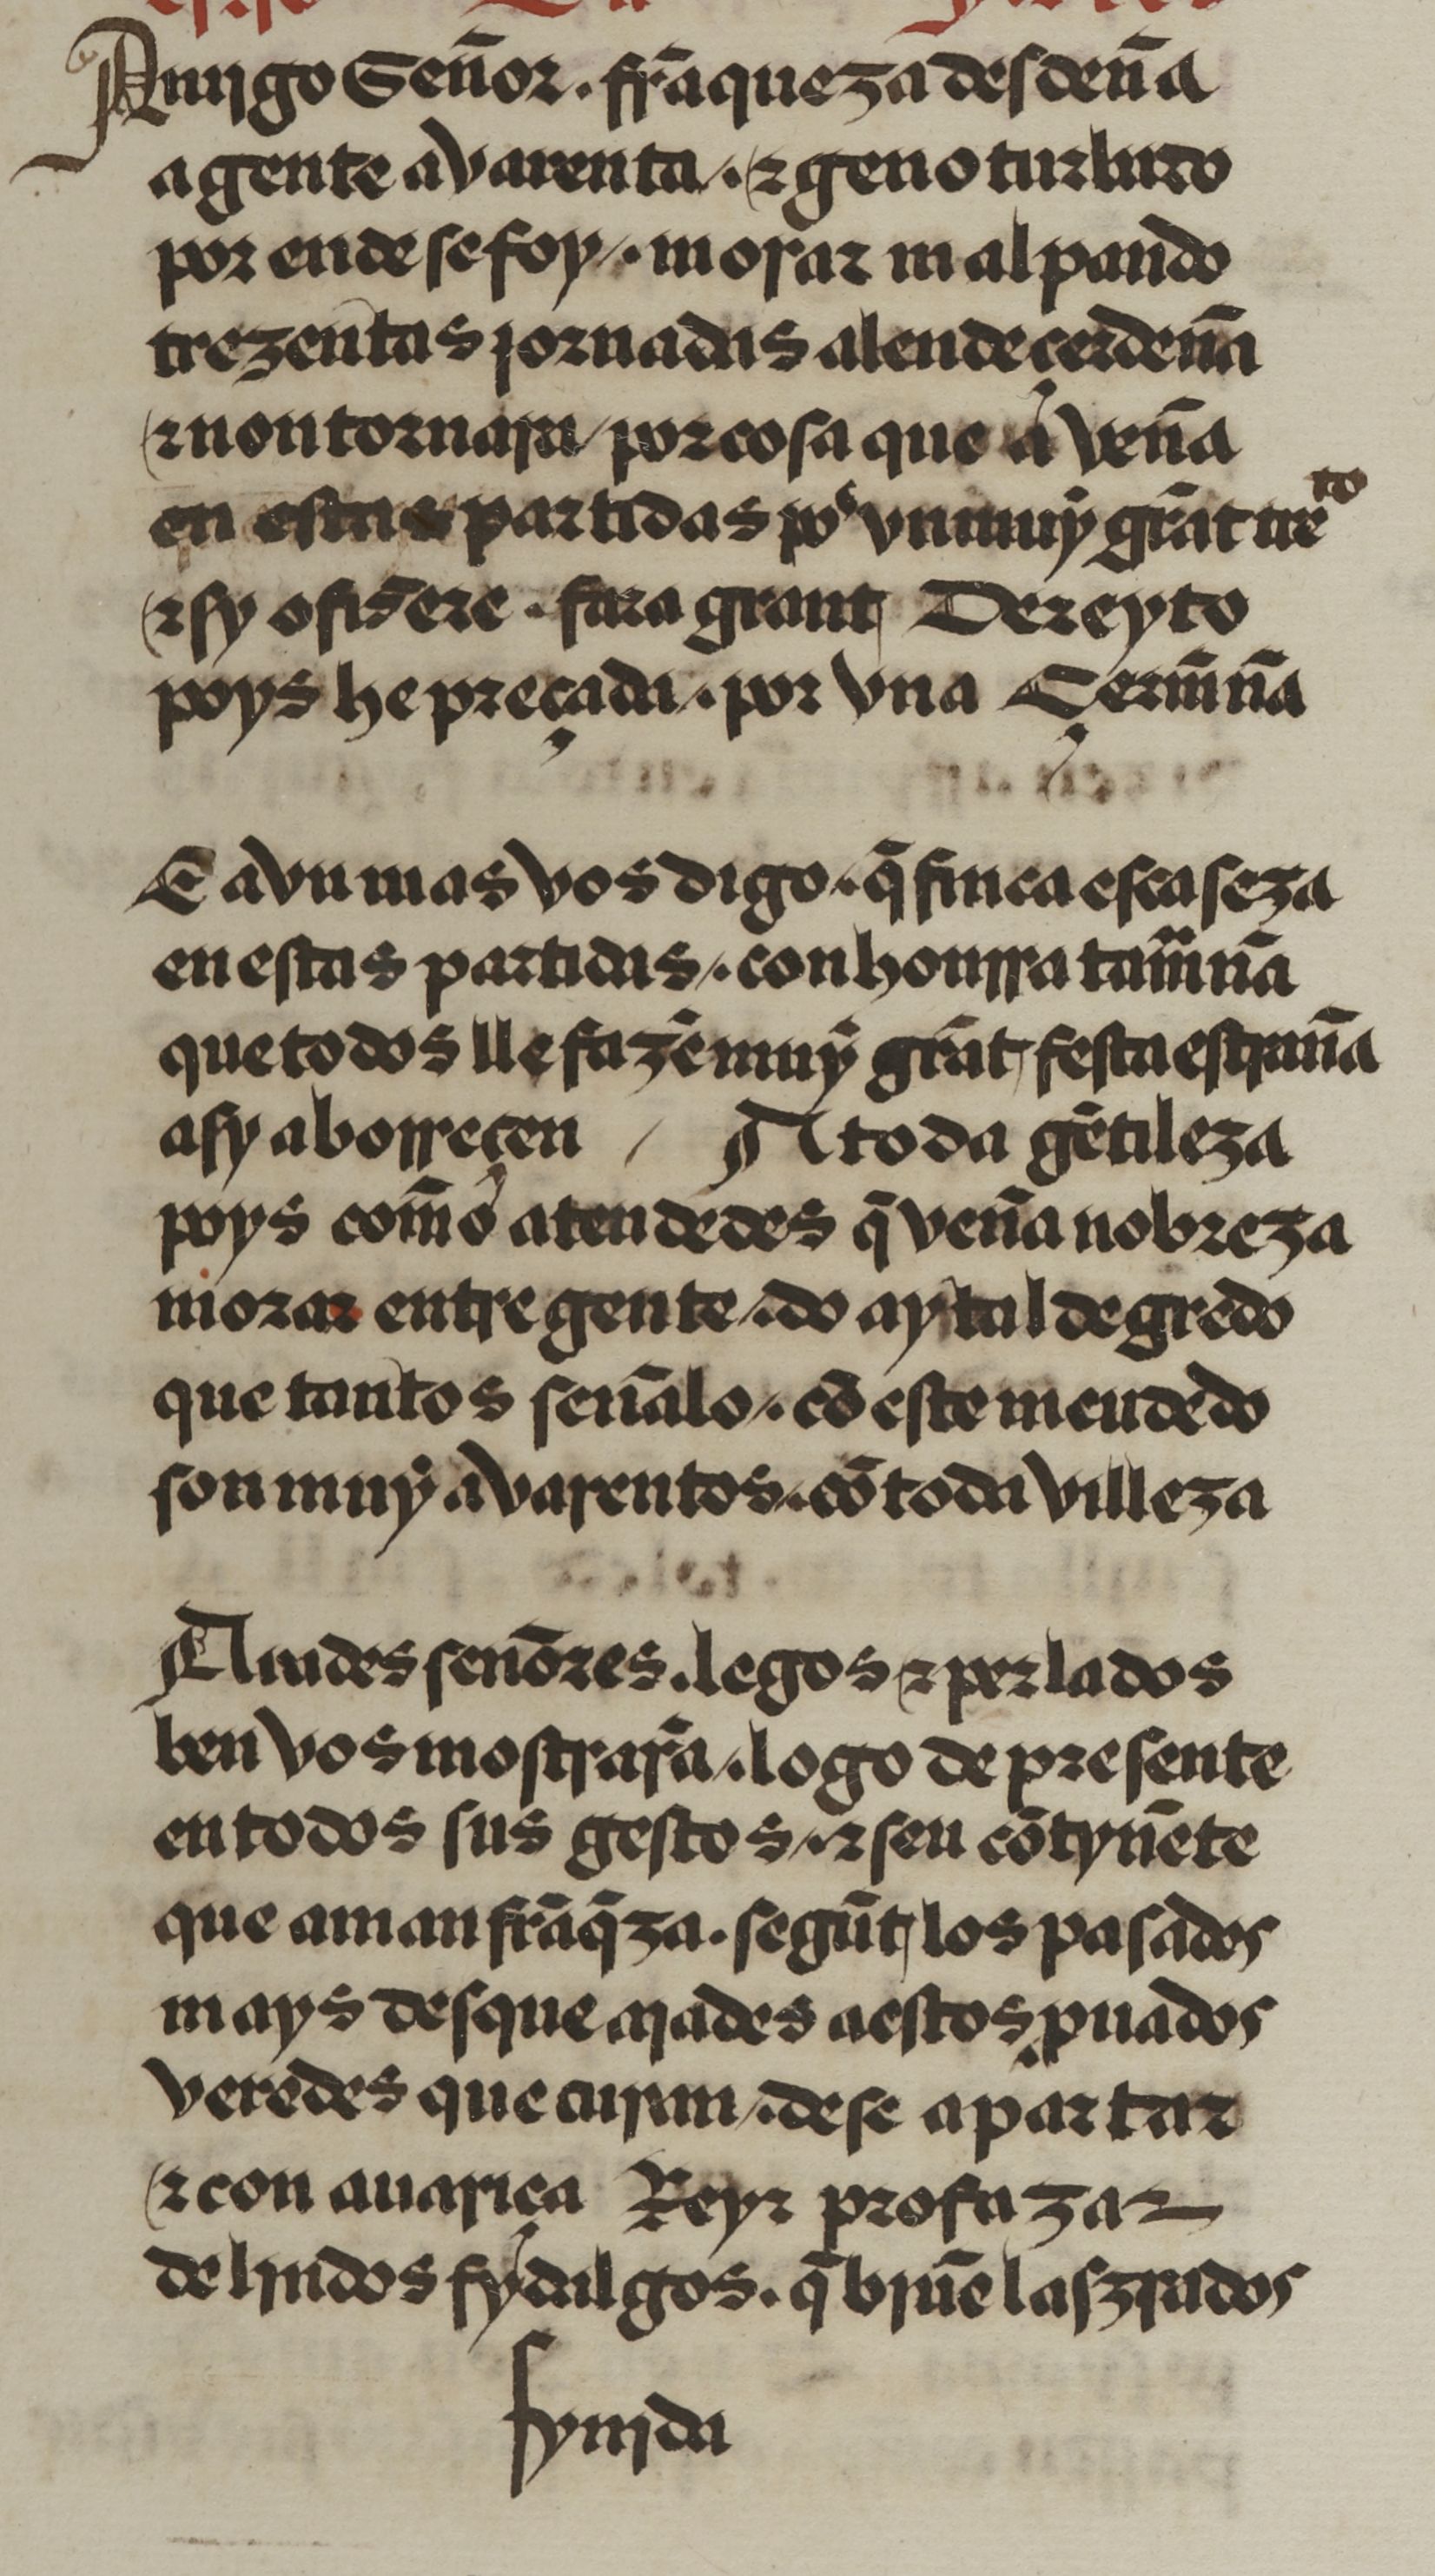 Amigo Señor . frãqueza desdeña
a gente avarenta . & geno turbado
por ende se foy . morar mal pãdo
trezentas jornadas alende çerdeña
& non tornara por cosa que a veña
en estas partidas por vn muỹ grãt tre to
& sy o fizere . fara grant Dereyto
poys he preçada . por vna Çermẽña
E avn mas vos digo . q̃ finca escaseza
en estas partidas . con honrra tamãña
que todos lle fazẽ muỹ grãt festa estraña
asy aborreçen / A toda gẽtileza
poys com̃o atendedes q̃ veña nobreza
morar entre gente . do ay tal degredo
que tantos señalo . cõ este meu dedo
son muỹ avarentos . cõ toda villeza
Andes señores . legos & perlados
ben vos mostrarã . logo de presente
en todos sus gestos . & seu cõtynẽte
que aman frãq̃za . segũt los pasados
mays desque ajades a estos puados
veredes que curan . de se apartar
& con auariça Reyr profazar
de lindos fydalgos . q̃ biuẽ laszrados
fynida